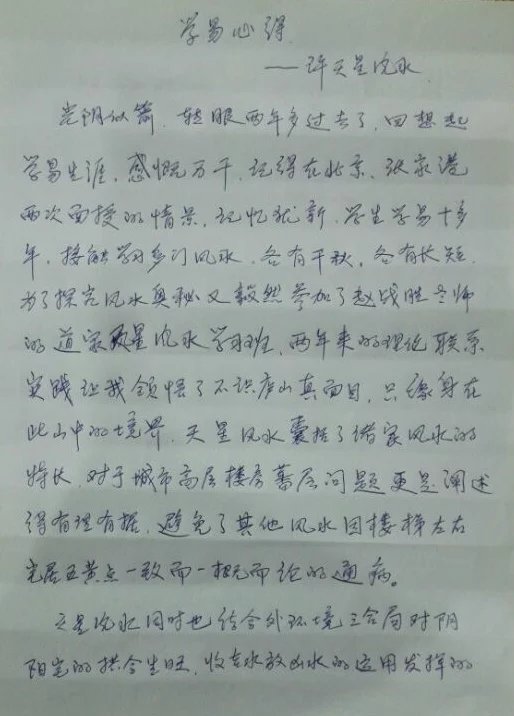 学易心得
——评天星风水
光阴似箭，转眼两年多过去了，回想起
学易生涯，感慨万千，记得在北京、张家港
两次面授的情景，记忆犹新，学生学易十多
年，接触学习多门风水，各有千秋，各有长短，
为了探究风水奥秘又毅然参加了赵战胜老师
的道家天星风水学习班，两年来的理论联系
实践让我领悟了不识庐山真面目，只缘身在
此山中的境界，天星风水囊括了诸家风水的
特长，对于城市高层楼房幕层问题更是阐述
得有理有据，避免了其他风水因楼梯左右
宅居五黄点一致而一概而论的通病。
天星风水同时也结合外环境三合局对阴
阳宅的拱合生旺，收去水放出水的运用发挥的